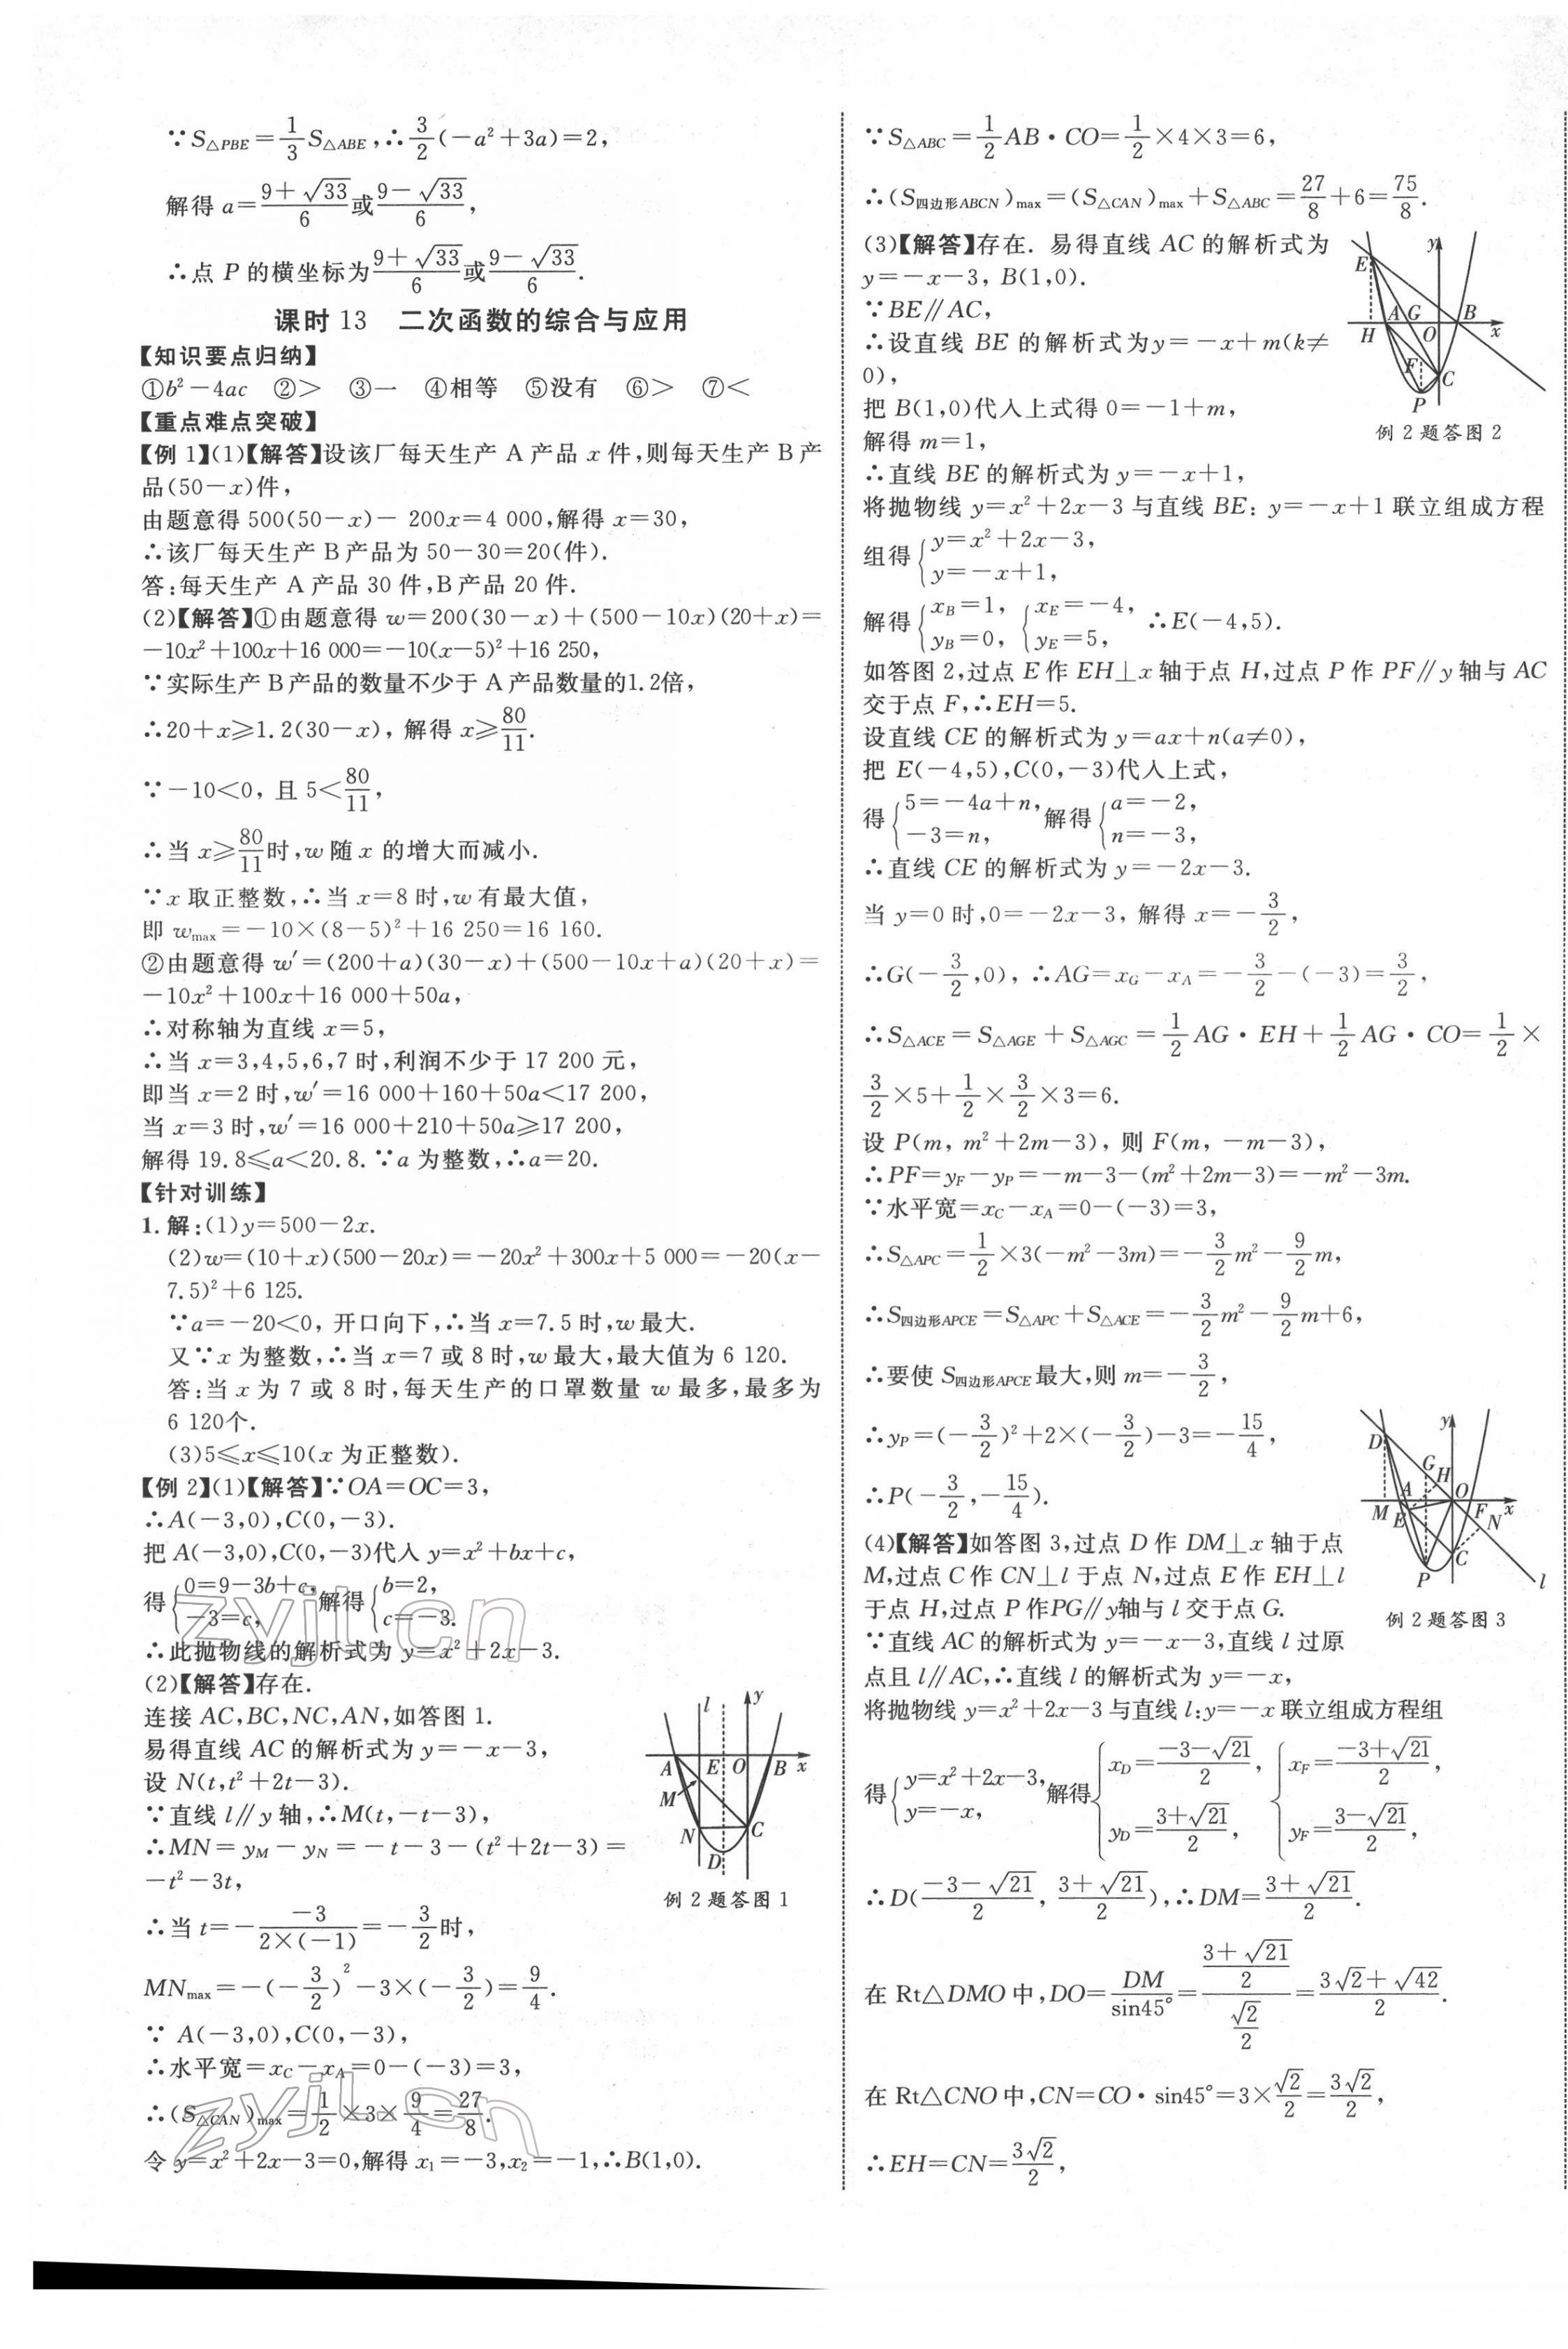 ∵S△PBE=1/3 S△ABE,∴3/2(-a²+3a)=2,
解得 a=(9+√33)/6或(9-√33)/6,
∴点 P 的横坐标为(9+√33)/6或(9-√33)/6.
课时 13 二次函数的综合与应用
【知识要点归纳】
①b²-4ac ②> ③一 ④相等 ⑤没有 ⑥> ⑦<
【重点难点突破】
【例 1】(1)【解答】设该厂每天生产 A 产品 x 件,则每天生产 B 产
品(50-x)件,
由题意得 500(50-x)- 200x=4 000,解得 x=30,
∴该厂每天生产 B 产品为 50-30=20(件).
答:每天生产 A 产品 30 件,B 产品 20 件.
(2)【解答】①由题意得 w=200(30-x)+(500-10x)(20+x)=
-10x²+100x+16 000=-10(x-5)²+16 250,
∵实际生产 B 产品的数量不少于 A 产品数量的1.2倍,
∴20+x≥1.2(30-x),解得 x≥80/11.
∵-10<0, 且 5<80/11,
∴当 x≥80/11时,w 随 x 的增大而减小.
∵x 取正整数,∴当 x=8 时,w 有最大值,
即 wmax=-10×(8-5)²+16 250=16 160.
②由题意得 w′=(200+a)(30-x)+(500-10x+a)(20+x)=
-10x²+100x+16 000+50a,
∴对称轴为直线 x=5,
∴当 x=3,4,5,6,7 时,利润不少于 17 200 元,
即当 x=2 时,w′=16 000+160+50a<17 200,
当 x=3 时,w′=16 000+210+50a≥17 200,
解得 19.8≤a<20.8.∵a 为整数,∴a=20.
【针对训练】
1. 解:(1)y=500-2x.
(2)w=(10+x)(500-20x)=-20x²+300x+5 000=-20(x-
7.5)²+6 125.
∵a=-20<0, 开口向下,∴当 x=7.5 时,w 最大.
又∵x 为整数,∴当 x=7 或 8 时,w 最大,最大值为 6 120.
答:当 x 为 7 或 8 时,每天生产的口罩数量 w 最多,最多为
6 120个.
(3)5≤x≤10(x 为正整数).
【例 2】(1)【解答】∵OA=OC=3,
∴A(-3,0),C(0,-3).
把 A(-3,0),C(0,-3)代入 y=x²+bx+c,
得{0=9-3b+c, -3=c, 解得{b=2, c=-3.
∴此抛物线的解析式为 y=x²+2x-3.
(2)【解答】存在.
连接 AC,BC,NC,AN,如答图 1.
易得直线 AC 的解析式为 y=-x-3,
设 N(t,t²+2t-3).
∵直线 l∥y 轴,∴M(t,-t-3),
∴MN=yM-yN=-t-3-(t²+2t-3)=
-t²-3t,
l y A E O B x M N C D
例 2 题答图 1
∴当 t=-(-3)/(2×(-1))=-3/2时,
MNmax=-(-3/2)²-3×(-3/2)=9/4.
∵ A(-3,0),C(0,-3),
∴水平宽=xC-xA=0-(-3)=3,
∴(S△CAN)max=1/2×3×9/4=27/8.
令 y=x²+2x-3=0,解得 x₁=-3,x₂=-1,∴B(1,0).
zyjl.cn
zyjl.cn
∵S△ABC=1/2 AB·CO=1/2×4×3=6,
∴(S四边形ABCN)max=(S△CAN)max+S△ABC=27/8+6=75/8.
(3)【解答】存在. 易得直线 AC 的解析式为
y=-x-3, B(1,0).
∵BE∥AC,
∴设直线 BE 的解析式为y=-x+m(k≠
0),
把 B(1,0)代入上式得 0=-1+m,
解得 m=1,
E y A G B H O x F C P
例 2 题答图 2
∴直线 BE 的解析式为 y=-x+1,
将抛物线 y=x²+2x-3 与直线 BE: y=-x+1 联立组成方程
组得{y=x²+2x-3, y=-x+1,
解得{xB=1, yB=0, {xE=-4, yE=5, ∴E(-4,5).
如答图 2,过点 E 作 EH⊥x 轴于点 H,过点 P 作 PF∥y 轴与 AC
交于点 F,∴EH=5.
设直线 CE 的解析式为 y=ax+n(a≠0),
把 E(-4,5),C(0,-3)代入上式,
得{5=-4a+n, -3=n, 解得{a=-2, n=-3,
∴直线 CE 的解析式为 y=-2x-3.
当 y=0 时,0=-2x-3, 解得 x=-3/2,
∴G(-3/2,0), ∴AG=xG-xA=-3/2-(-3)=3/2,
∴S△ACE=S△AGE+S△AGC=1/2 AG·EH+1/2 AG·CO=1/2×
3/2×5+1/2×3/2×3=6.
设 P(m, m²+2m-3), 则 F(m, -m-3),
∴PF=yF-yP=-m-3-(m²+2m-3)=-m²-3m.
∵水平宽=xC-xA=0-(-3)=3,
∴S△APC=1/2×3(-m²-3m)=-3/2m²-9/2m,
∴S四边形APCE=S△APC+S△ACE=-3/2m²-9/2m+6,
∴要使 S四边形APCE最大,则 m=-3/2,
∴yP=(-3/2)²+2×(-3/2)-3=-15/4,
∴P(-3/2,-15/4).
(4)【解答】如答图 3,过点 D 作 DM⊥x 轴于点
M,过点 C 作 CN⊥l 于点 N,过点 E 作 EH⊥l
于点 H,过点 P 作PG∥y轴与 l 交于点 G.
D y G H A O M E F N x C P l
例 2 题答图 3
∵直线 AC 的解析式为 y=-x-3,直线 l 过原
点且 l∥AC,∴直线 l 的解析式为 y=-x,
将抛物线 y=x²+2x-3 与直线 l:y=-x 联立组成方程组
得{y=x²+2x-3, y=-x, 解得{xD=(-3-√21)/2, yD=(3+√21)/2, {xF=(-3+√21)/2, yF=(3-√21)/2,
∴D((-3-√21)/2, (3+√21)/2),∴DM=(3+√21)/2.
在 Rt△DMO 中,DO=DM/sin45°=((3+√21)/2)/(√2/2)=(3√2+√42)/2.
在 Rt△CNO 中,CN=CO·sin45°=3×√2/2=3√2/2,
∴EH=CN=3√2/2,